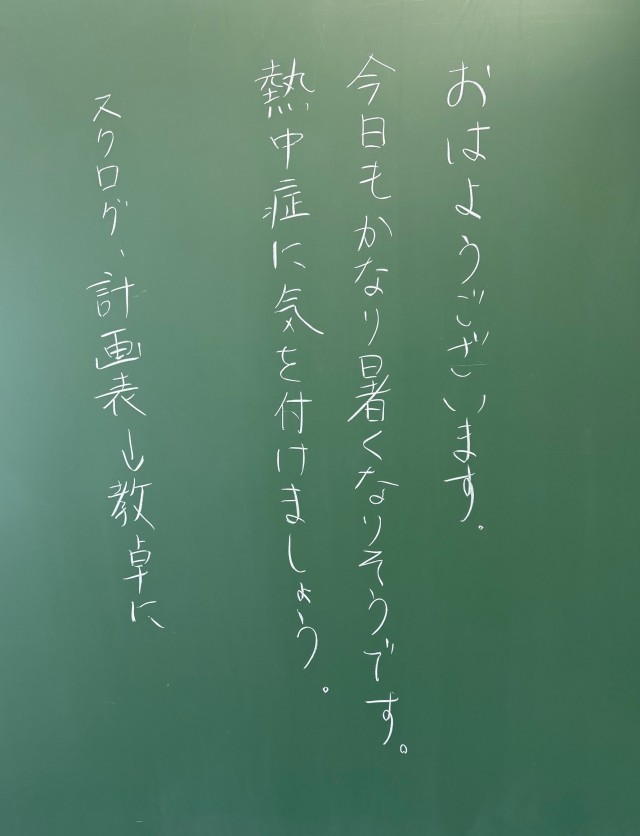 おはようございます。
今日もかなり暑くなりそうです。
熱中症に気を付けましょう。
スクログ、計画表→教卓に